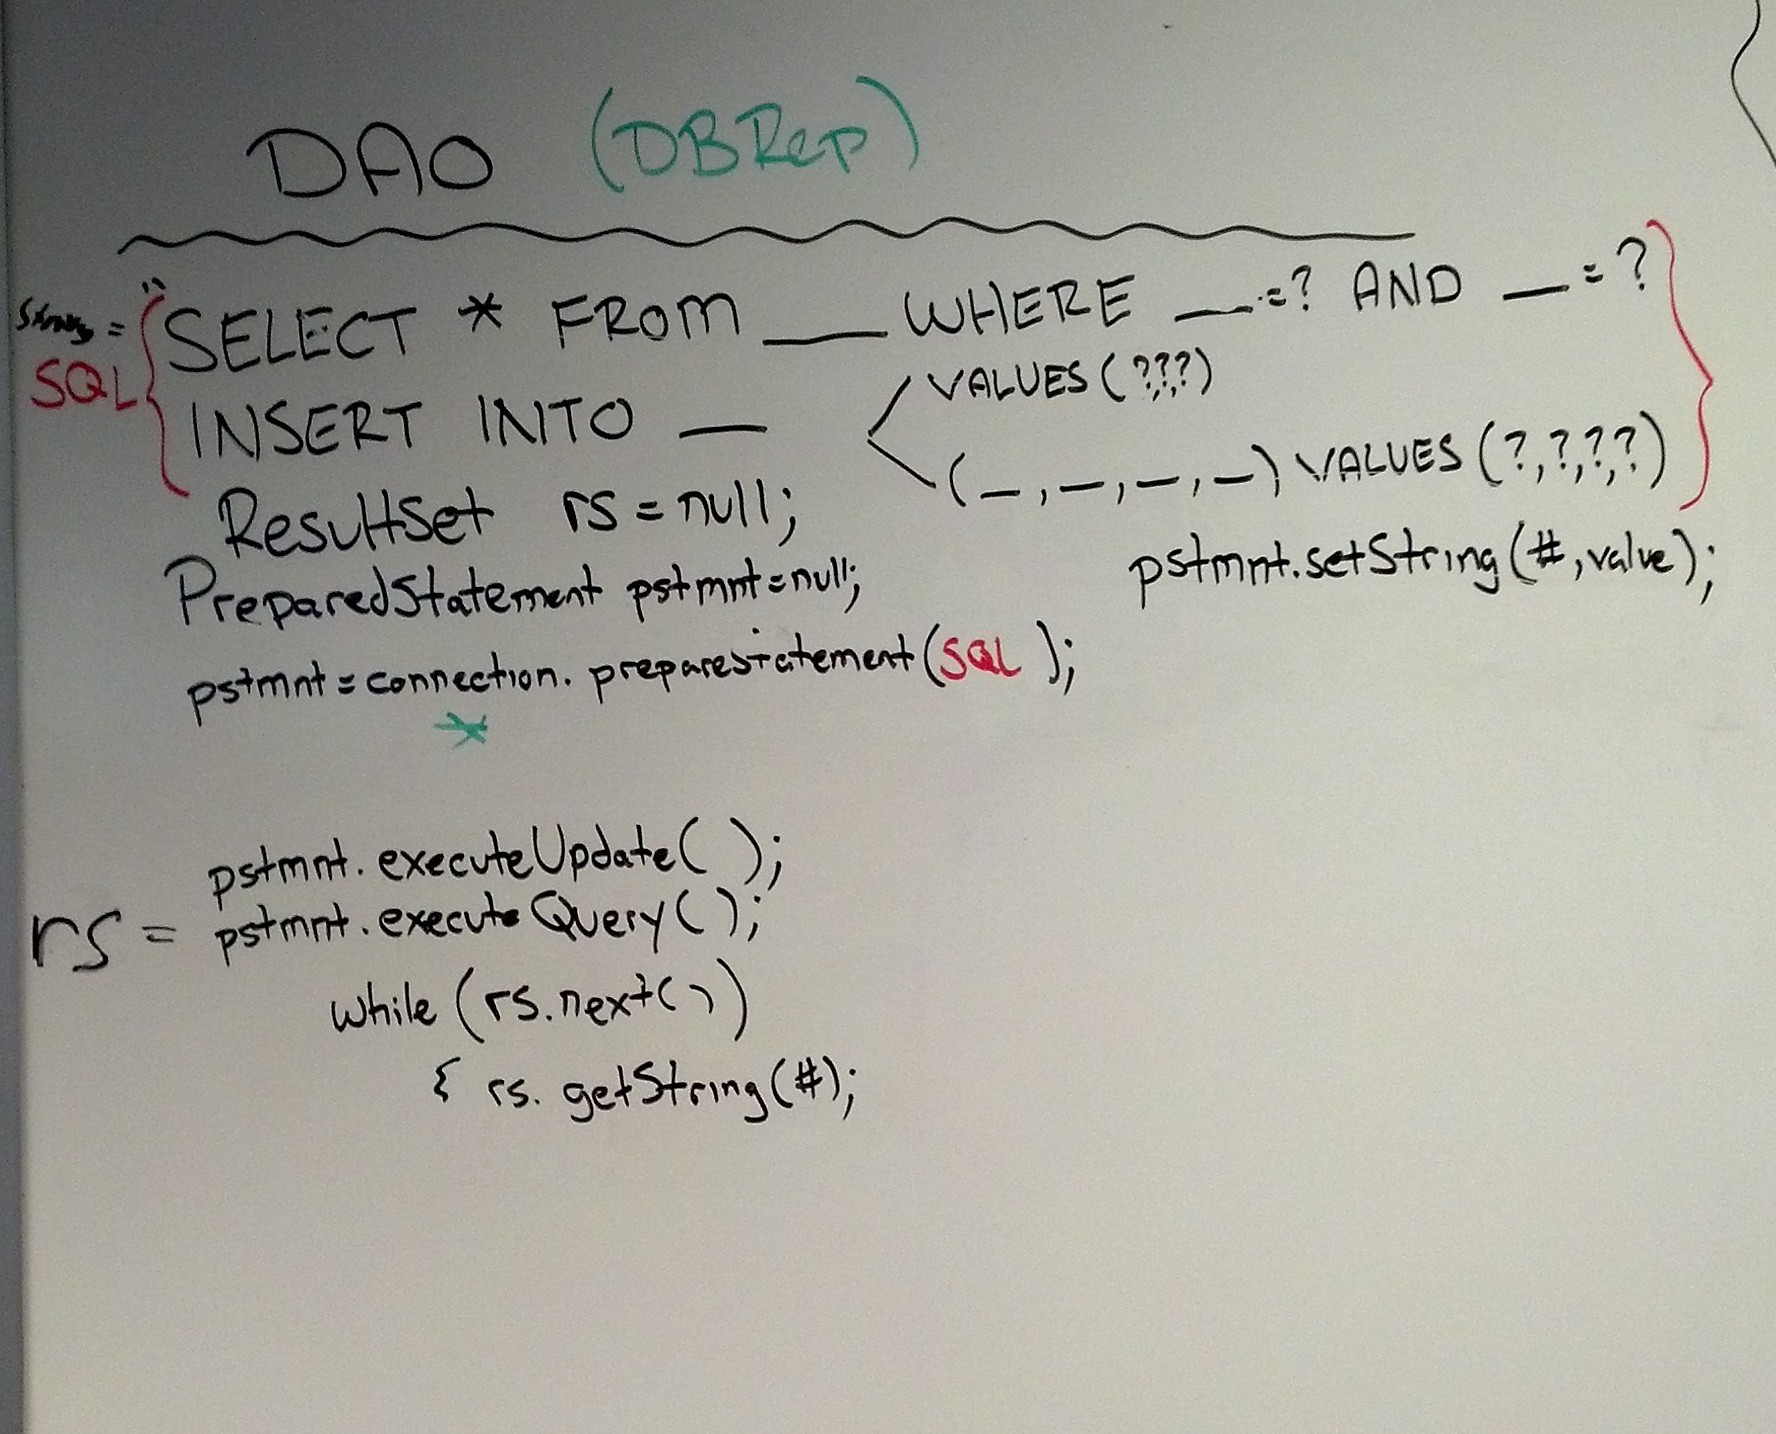 DAO (DBRep)
String = "SELECT * FROM __ WHERE __=? AND __=?
SQL
VALUES (?,?,?)
INSERT INTO __
(_,_,_,_) VALUES (?,?,?,?)
ResultSet rs = null;
PreparedStatement pstmnt=null;
pstmnt.setString(#,value);
pstmnt=connection.preparestatement(SQL);
*
pstmnt.executeUpdate( );
rs = pstmnt.executeQuery( );
while (rs.next())
{ rs.getString(#);